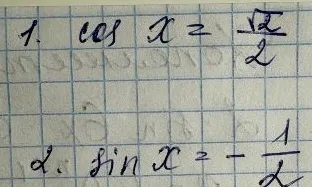 1. cos x = √2/2
2. sin x = - 1/2